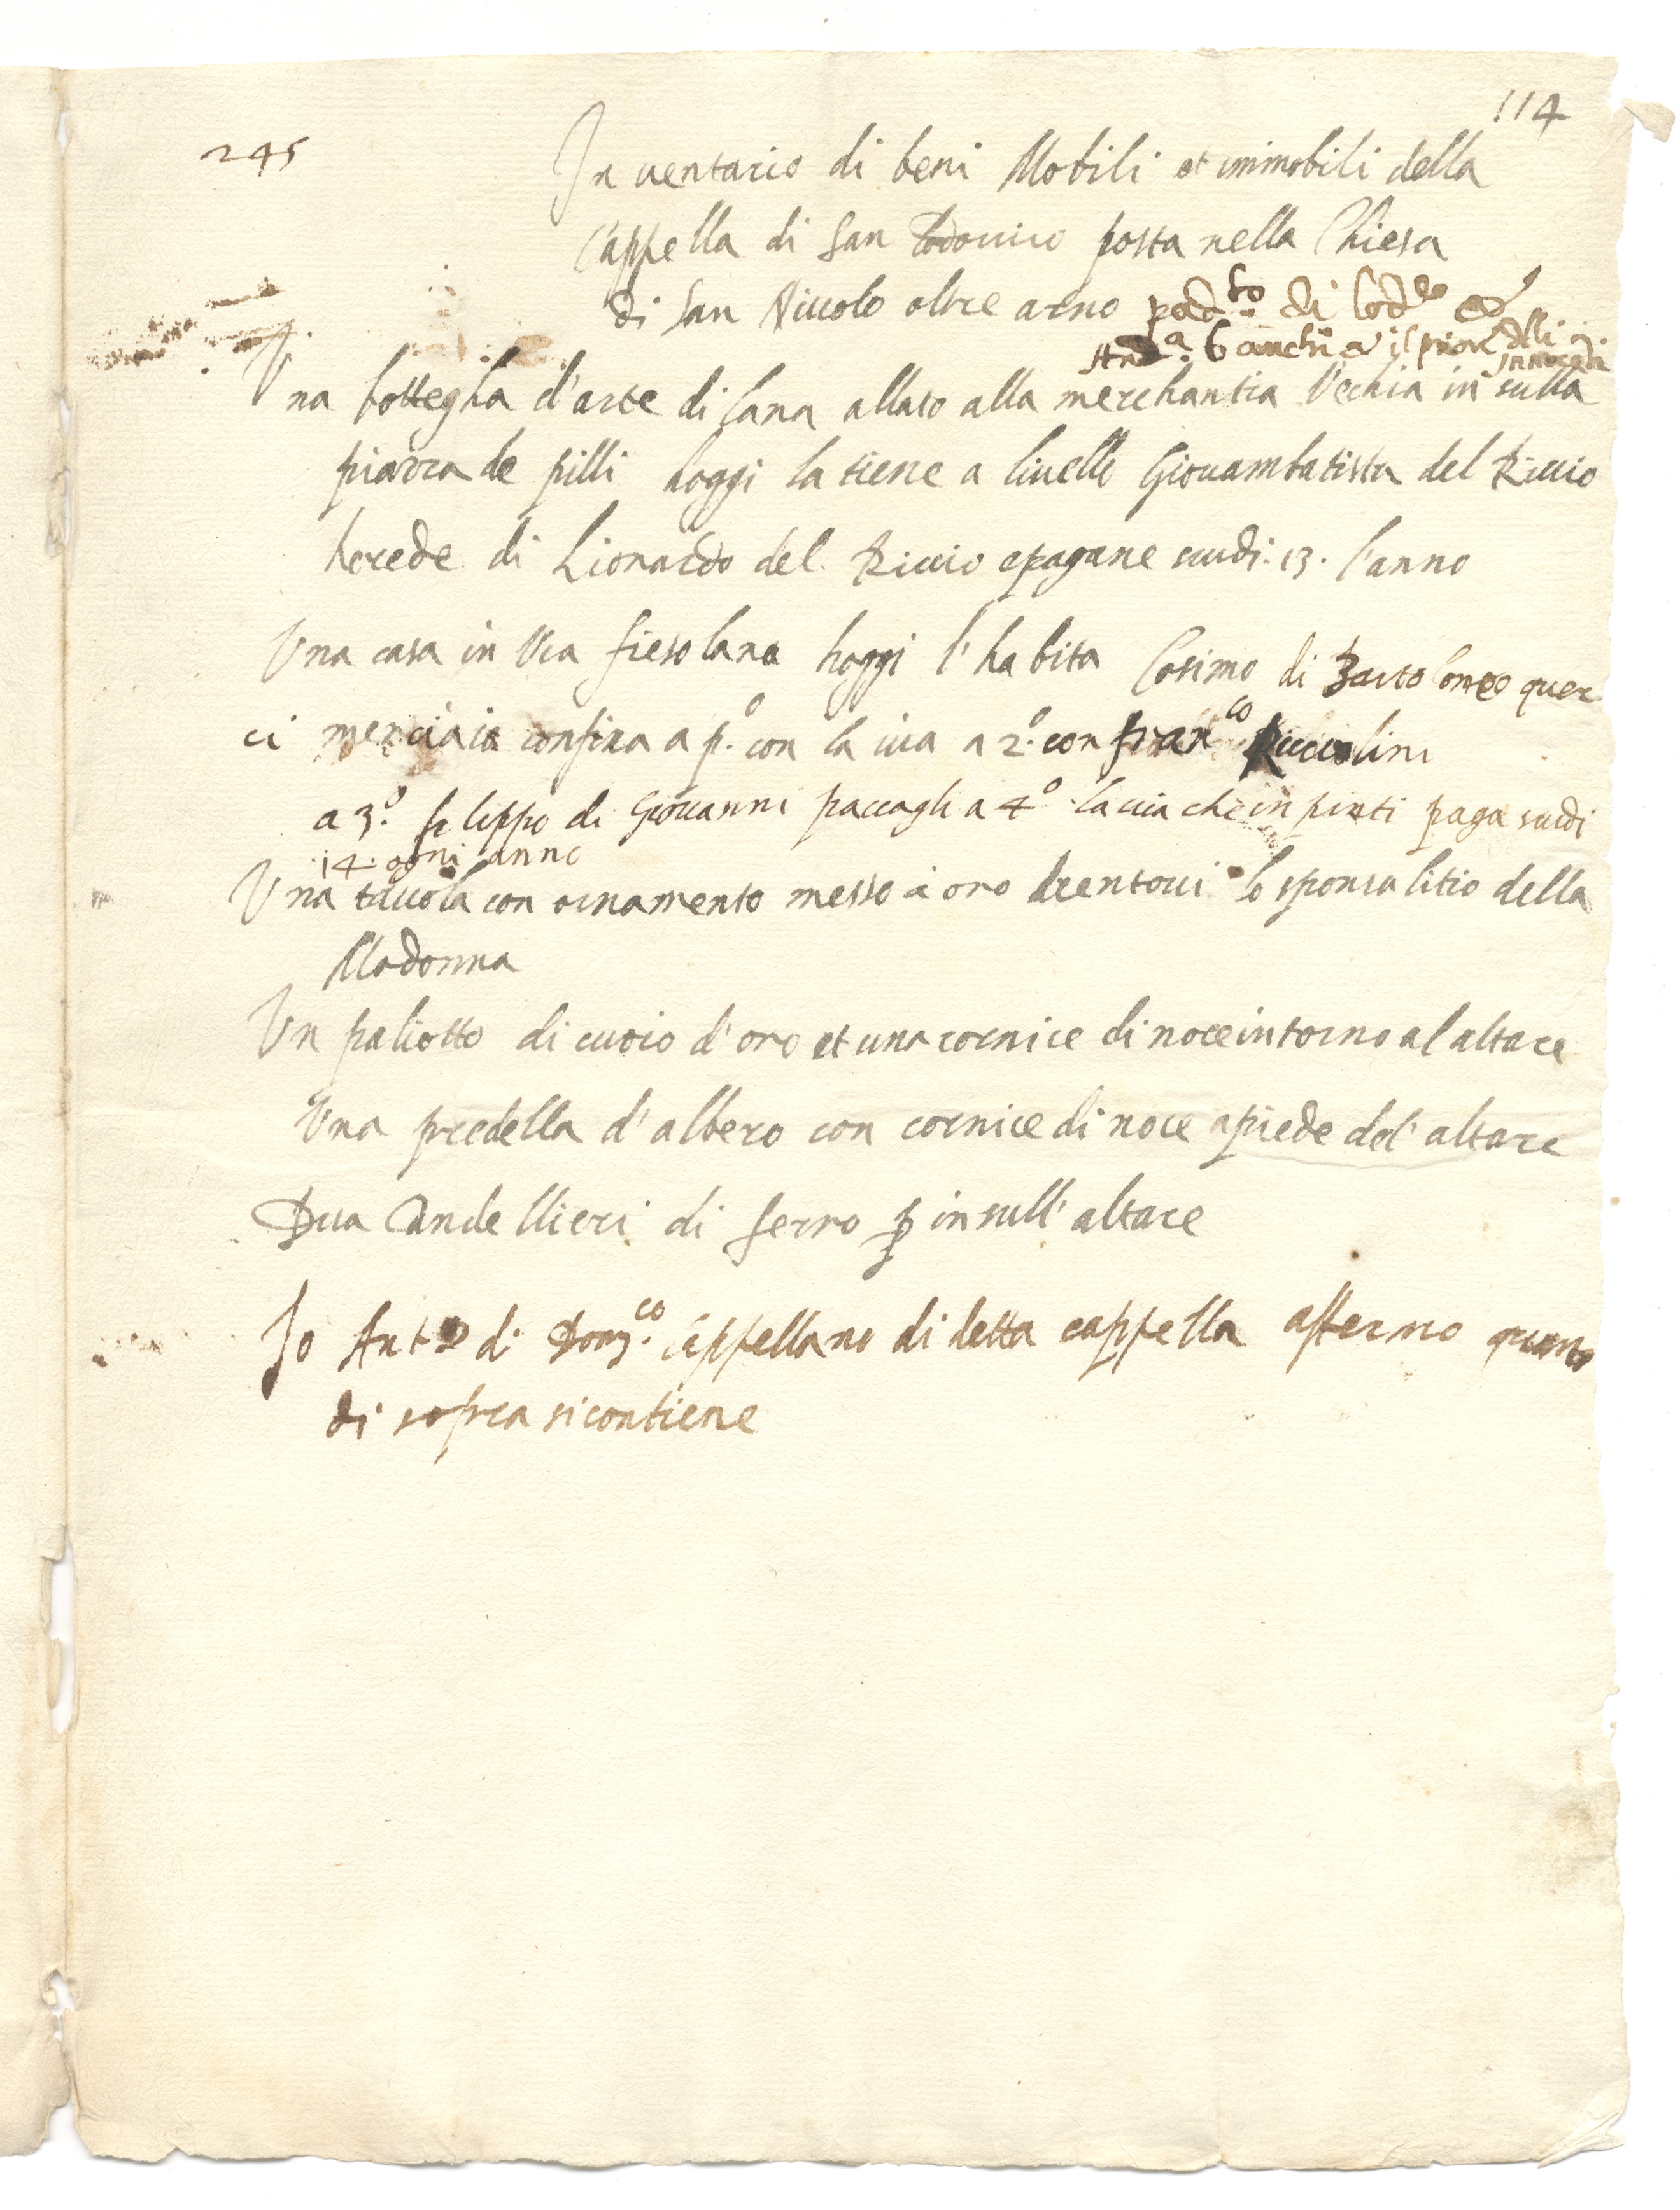 114
245
Inventario di beni Mobili et immobili della
Cappella di San Lodovico posta nella Chiesa
di San Niccolo oltre arno pad.to di Lod.co et
And.a Bianchi è il prior delli Innocenti
Una bottegha d'arte di lana allato alla merchantia Vechia in sulla
piazza de pilli hoggi la tiene a livello Giovambatista del Riccio
herede di Lionardo del Riccio epagane scudi .13. l'anno
Una casa in Via fiesolana hoggi l'habita Cosimo di Bartolomeo quer
ci merciaio confina a p.o con la via a 2.o con fran.co Ricciolini
a 3.o filippo di Giovanni paccagli a 4.o la via che in pinti paga scudi
.14. ogni anno
Una tavola con ornamento messo a oro drentovi lo sponsalitio della
Madonna
Un paliotto di cuoio d'oro et una cornice di noce intorno al altare
Una predella d'albero con cornice di noce apiede del' altare
Dua Candellieri di ferro p in sull' altare
Io Ant.o di Dom.co Cappellano di detta cappella affermo quanto
di sopra si contiene